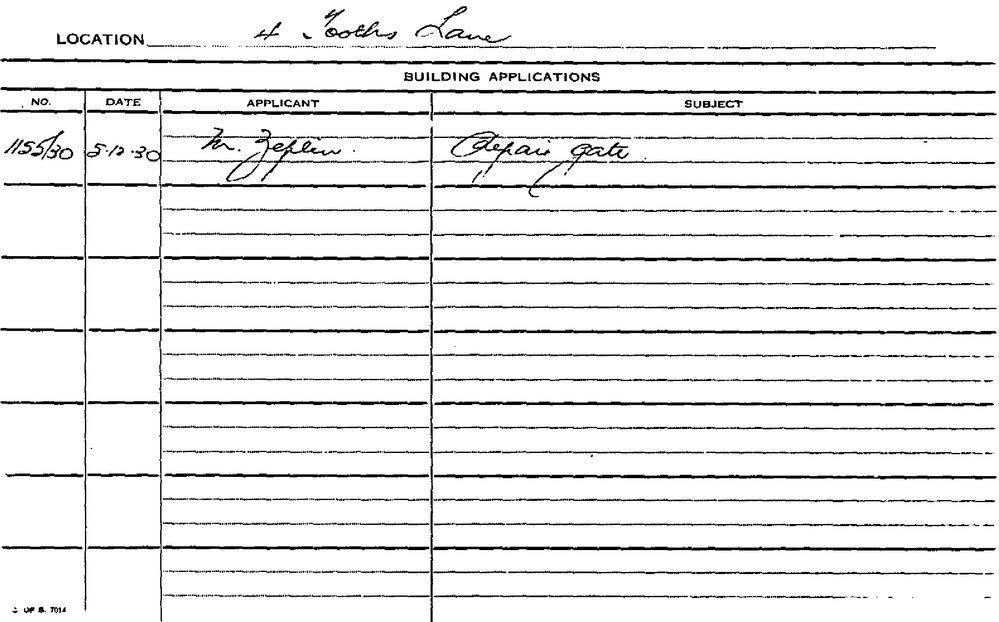 LOCATION 4 Tooths Lane
BUILDING APPLICATIONS
NO. DATE APPLICANT SUBJECT
1155/30 5.12.30 Mr. Zeplin. Repair gate.
C. OF S. 7014